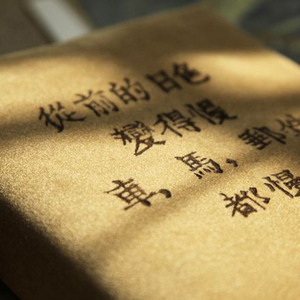 從前的日色
變得慢
車,馬,郵
都慢